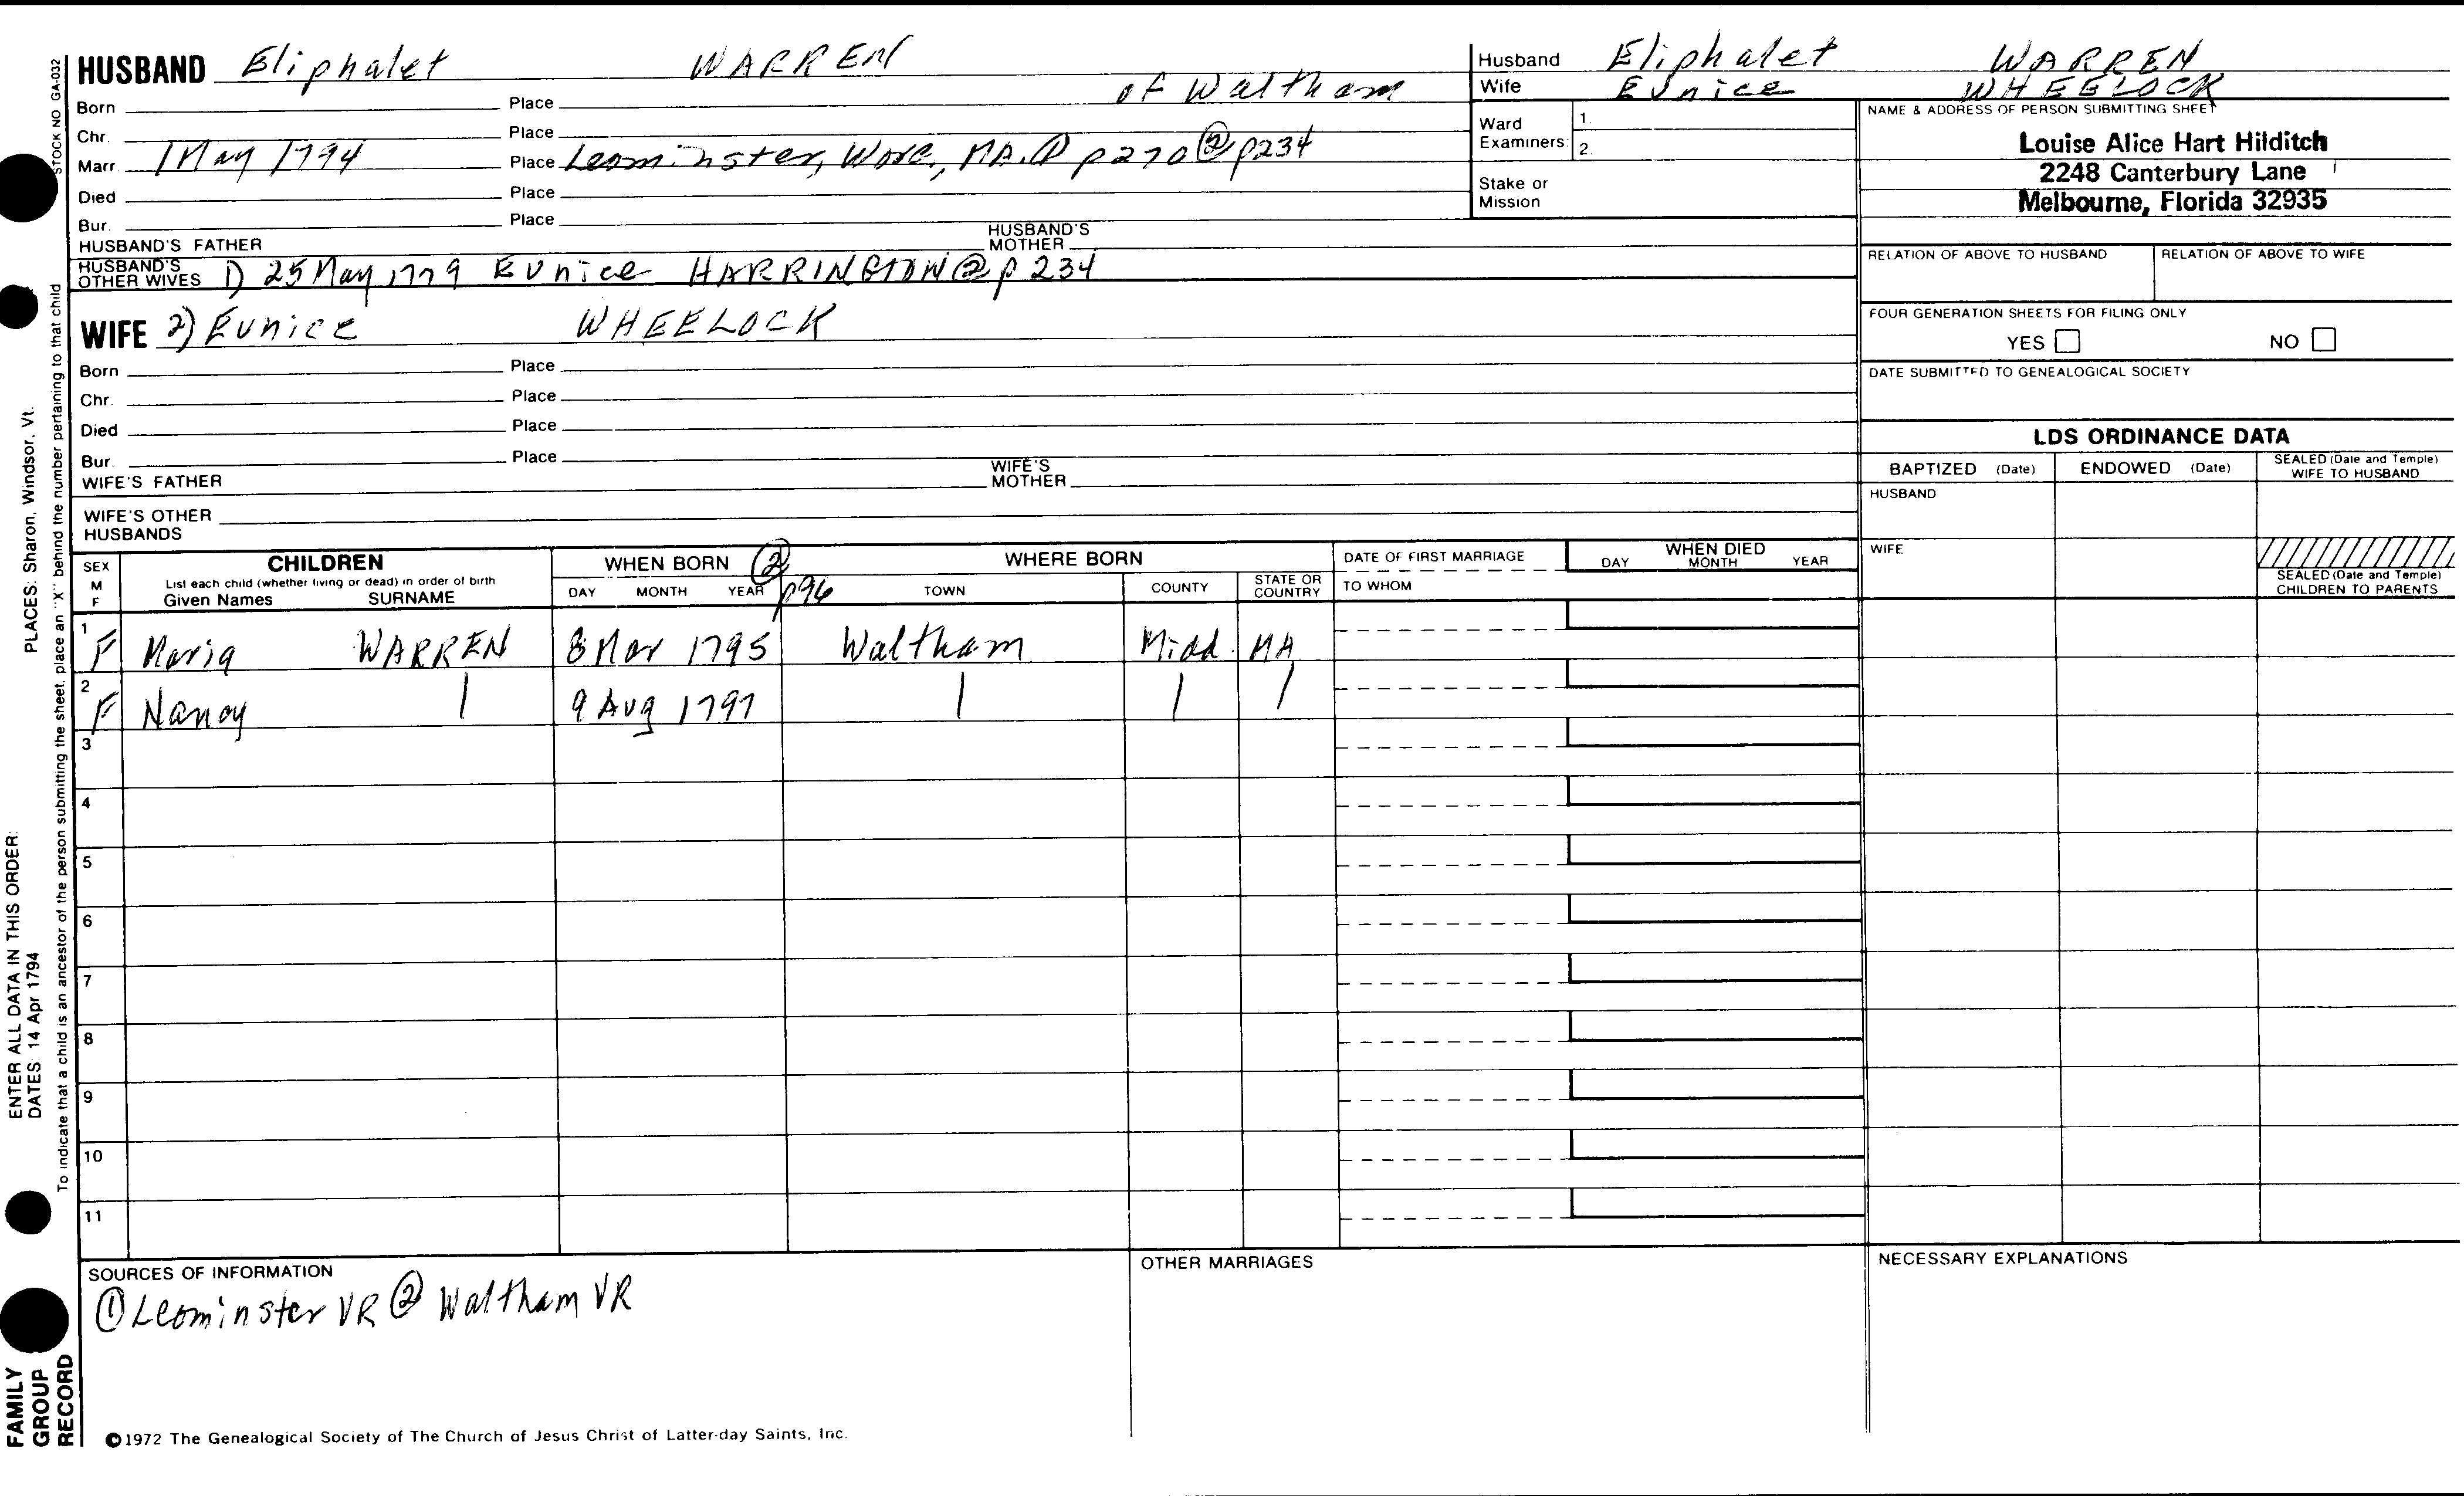 HUSBAND Eliphalet WARREN
of Waltham
Born Place
Chr. Place
Marr. 1 May 1794 Place Leominster, Worc, MA. ① p270 ② p234
Died Place
Bur. Place
HUSBAND'S FATHER HUSBAND'S MOTHER
HUSBAND'S OTHER WIVES 1) 25 May 1779 Eunice HARRINGTON ② p 234
WIFE 2) Eunice WHEELOCK
Born Place
Chr. Place
Died Place
Bur. Place
WIFE'S FATHER WIFE'S MOTHER
WIFE'S OTHER HUSBANDS
Husband Eliphalet WARREN
Wife Eunice WHEELOCK
Ward Examiners: 1. 2.
Stake or Mission
NAME & ADDRESS OF PERSON SUBMITTING SHEET
Louise Alice Hart Hilditch
2248 Canterbury Lane
Melbourne, Florida 32935
RELATION OF ABOVE TO HUSBAND RELATION OF ABOVE TO WIFE
FOUR GENERATION SHEETS FOR FILING ONLY
YES NO
DATE SUBMITTED TO GENEALOGICAL SOCIETY
LDS ORDINANCE DATA
BAPTIZED (Date) ENDOWED (Date) SEALED (Date and Temple) WIFE TO HUSBAND
HUSBAND
WIFE
SEALED (Date and Temple) CHILDREN TO PARENTS
SEX M F CHILDREN
List each child (whether living or dead) in order of birth
Given Names SURNAME
WHEN BORN ② p96
DAY MONTH YEAR
WHERE BORN
TOWN COUNTY STATE OR COUNTRY
DATE OF FIRST MARRIAGE
TO WHOM
WHEN DIED
DAY MONTH YEAR
1 F Maria WARREN 8 Mar 1795 Waltham Midd. MA
2 F Nancy | 9 Aug 1797 | | |
3
4
5
6
7
8
9
10
11
SOURCES OF INFORMATION
① Leominster VR ② Waltham VR
OTHER MARRIAGES
NECESSARY EXPLANATIONS
©1972 The Genealogical Society of The Church of Jesus Christ of Latter-day Saints, Inc.
FAMILY GROUP RECORD
ENTER ALL DATA IN THIS ORDER:
DATES: 14 Apr 1794
PLACES: Sharon, Windsor, Vt.
To indicate that a child is an ancestor of the person submitting the sheet, place an "X" behind the number pertaining to that child
STOCK NO GA-032